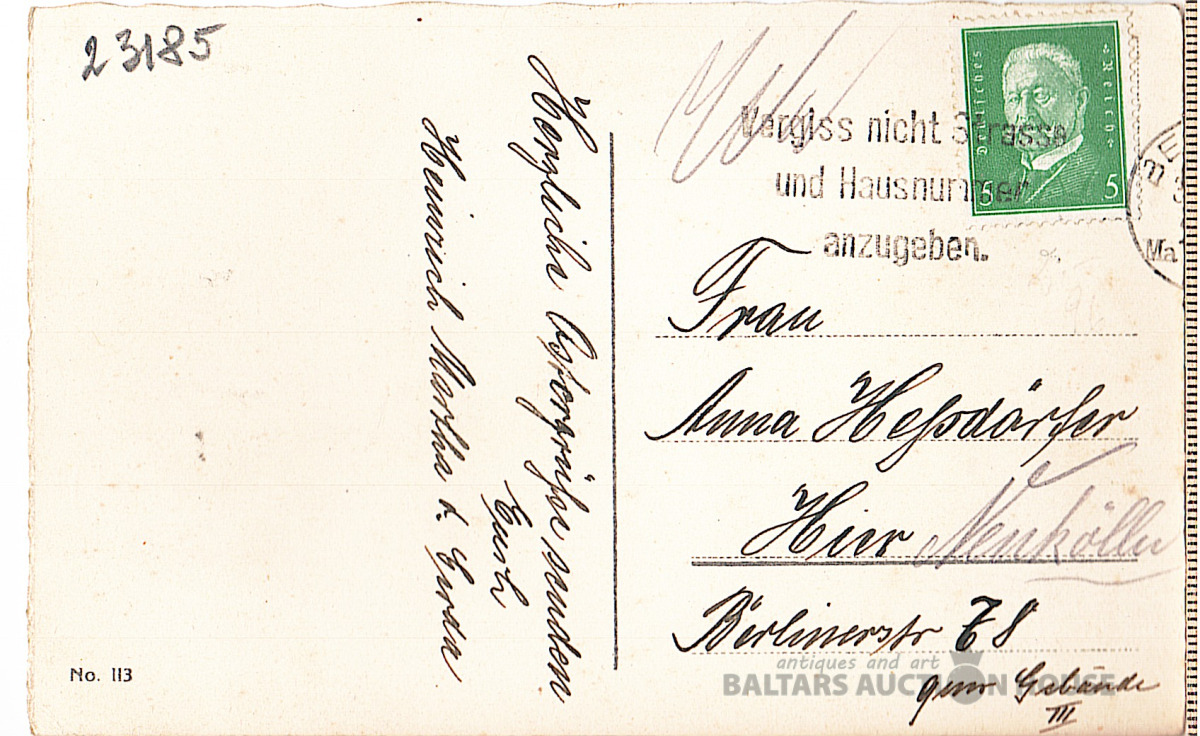 23185
Herzliche Ostergrüße senden
Euch
Heinrich Martha u. Gerda
Vergiss nicht Strasse
und Hausnummer
anzugeben.
Deutsches Reich
5 5
Frau
Anna Heßdörfer
Hier Neukölln
Berlinerstr 78
quer Gebäude
III
No. 113
antiques and art
BALTARS AUCTION HOUSE